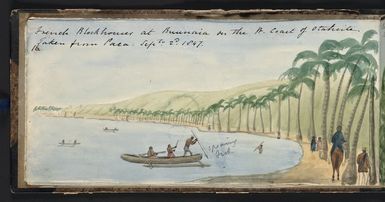 French Blockhouses at Bunaoia on the W. Coast of Otaheite.
Taken from Paea. Septr. 2d. 1847.
spearing
fish